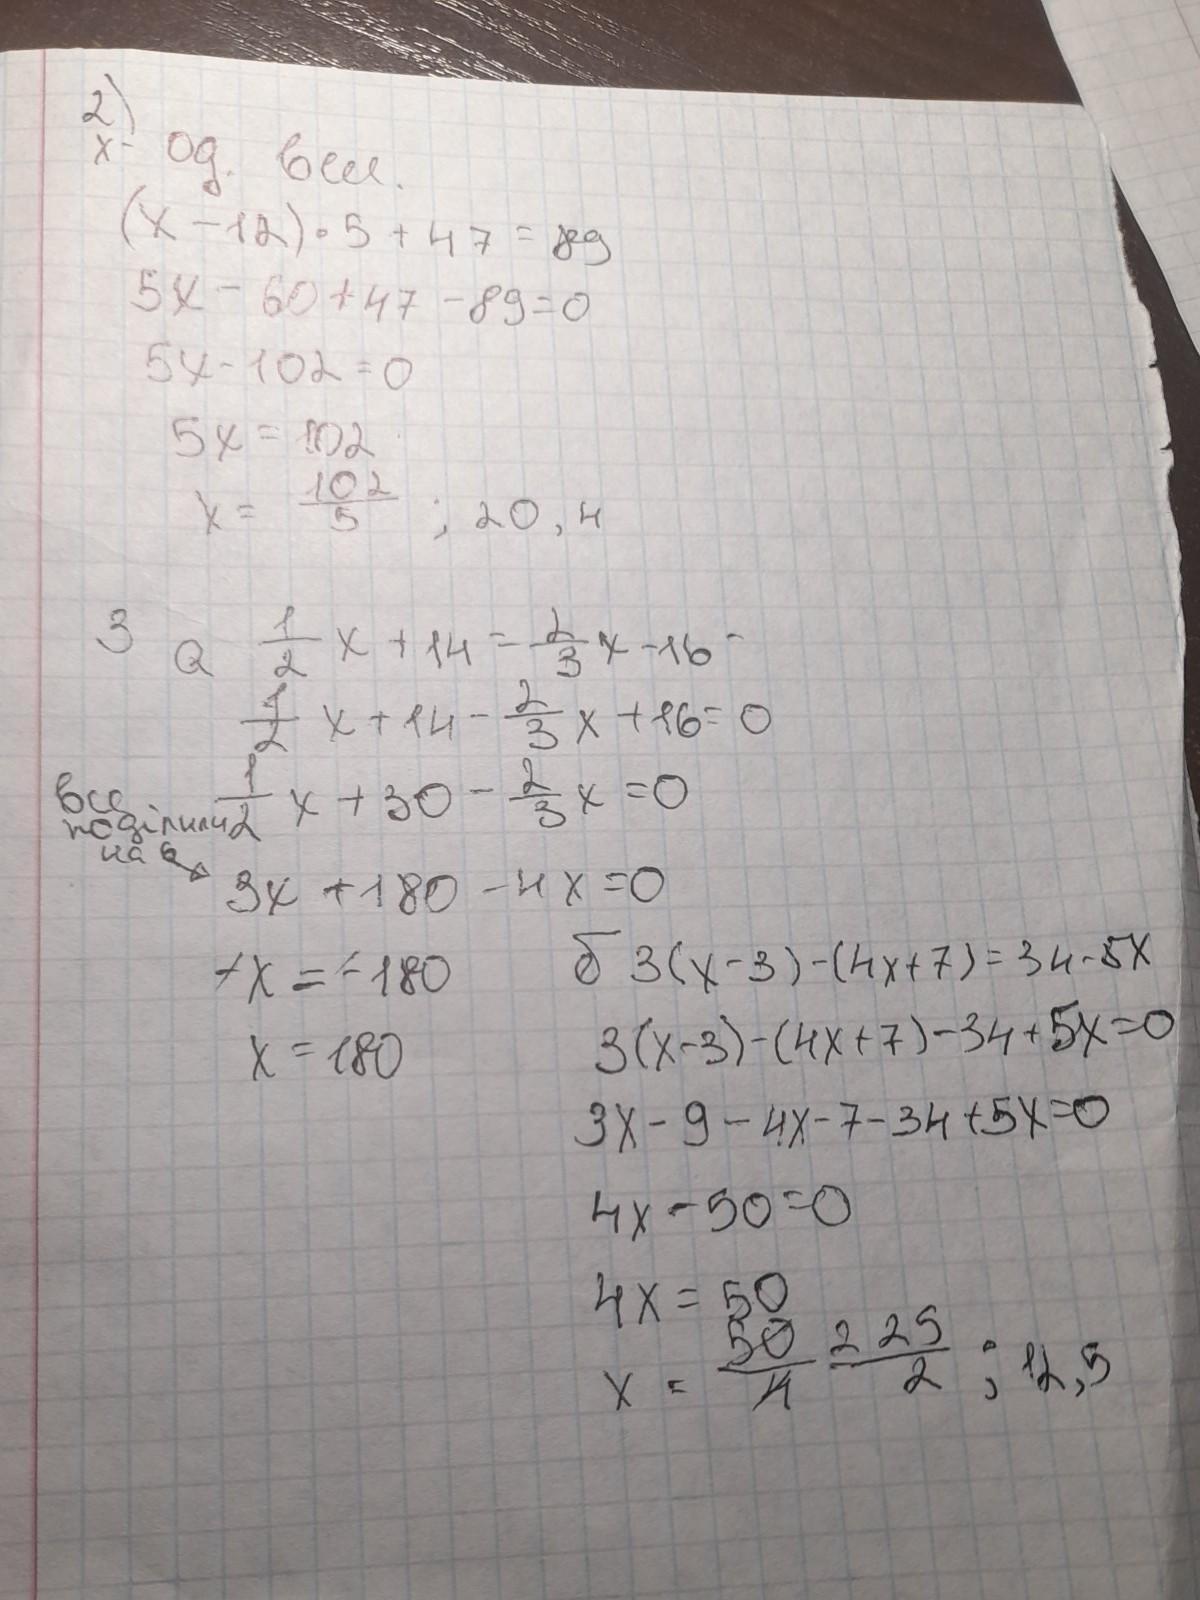 2)
x - од. вел.
(x - 12) • 5 + 47 = 89
5x - 60 + 47 - 89 = 0
5x - 102 = 0
5x = 102
x = 102/5 ; 20,4
3 a 1/2 x + 14 = 2/3 x - 16
1/2 x + 14 - 2/3 x + 16 = 0
1/2 x + 30 - 2/3 x = 0
все
поділили
на 6
3x + 180 - 4x = 0
-x = -180
x = 180
б 3(x - 3) - (4x + 7) = 34 - 5x
3(x - 3) - (4x + 7) - 34 + 5x = 0
3x - 9 - 4x - 7 - 34 + 5x = 0
4x - 50 = 0
4x = 50
x = 50/4 = 25/2 ; 12,5